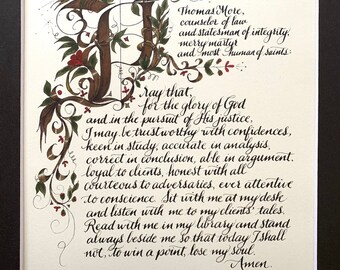 Thomas More,
counselor of law
and statesman of integrity,
merry martyr
and most human of saints:
Pray that,
for the glory of God
and in the pursuit of His justice,
I may be trustworthy with confidences,
keen in study, accurate in analysis,
correct in conclusion, able in argument,
loyal to clients, honest with all
courteous to adversaries, ever attentive
to conscience. Sit with me at my desk
and listen with me to my clients' tales.
Read with me in my library and stand
always beside me so that today I shall
not, to win a point, lose my soul.
Amen.